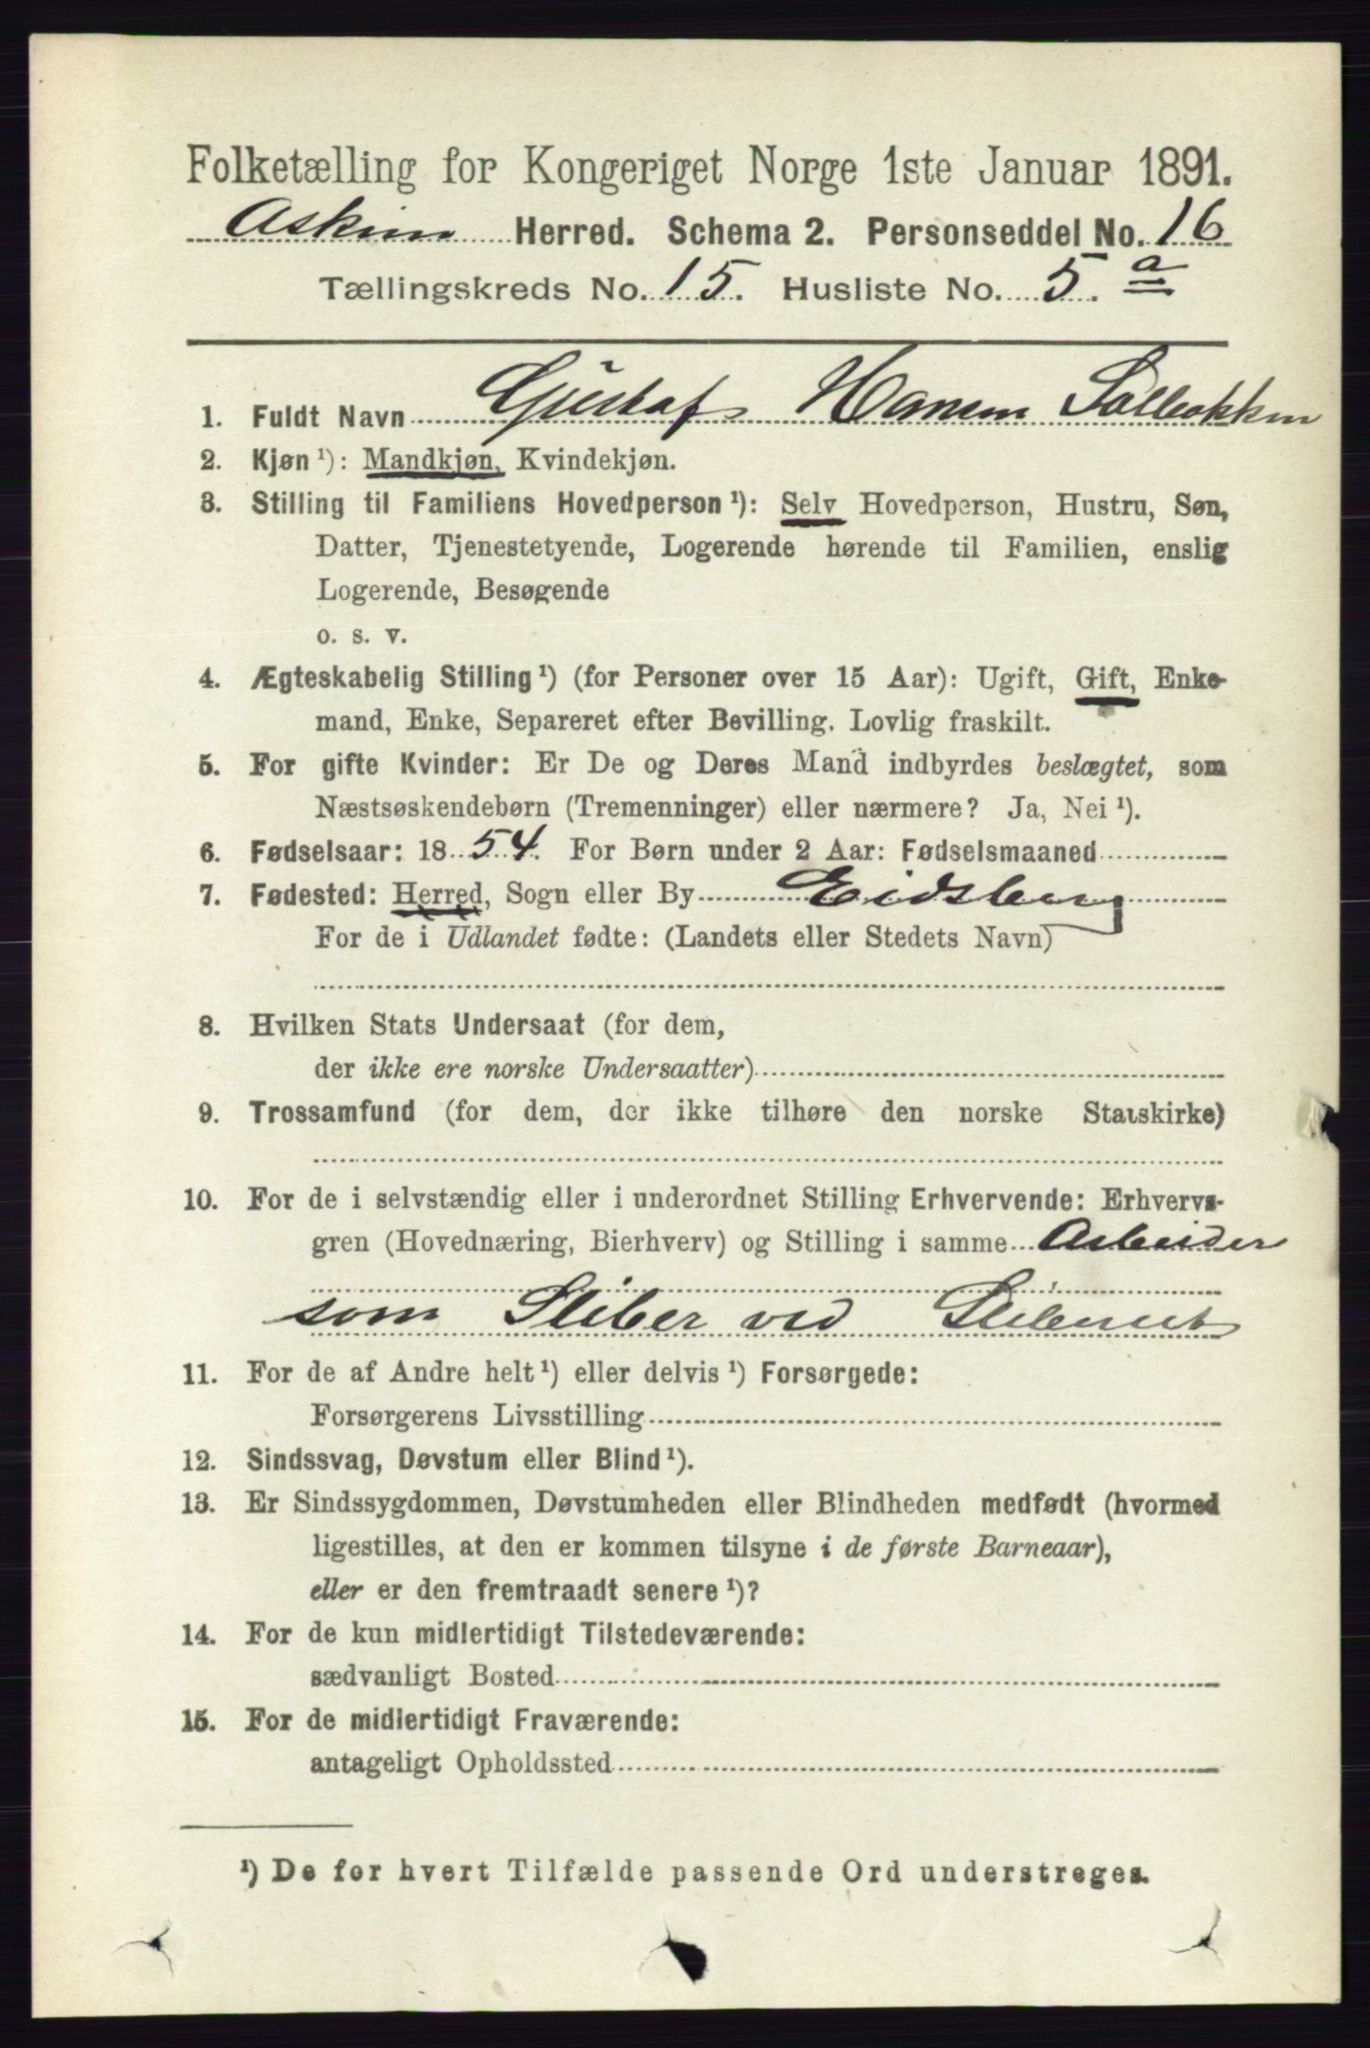 Folketælling for Kongeriget Norge 1ste Januar 1891.
Askim Herred. Schema 2. Personseddel No. 16
Tællingskreds No. 15. Husliste No. 5. a
1. Fuldt Navn Gustaf Hansen
2. Kjøn ¹): Mandkjøn, Kvindekjøn.
3. Stilling til Familiens Hovedperson ¹): Selv Hovedperson, Hustru, Søn,
Datter, Tjenestetyende, Logerende hørende til Familien, enslig
Logerende, Besøgende
o. s. v.
4. Ægteskabelig Stilling ¹) (for Personer over 15 Aar): Ugift, Gift, Enke-
mand, Enke, Separeret efter Bevilling. Lovlig fraskilt.
5. For gifte Kvinder: Er De og Deres Mand indbyrdes beslægtet, som
Næstsøskendebørn (Tremenninger) eller nærmere? Ja, Nei ¹).
6. Fødselsaar: 1854. For Børn under 2 Aar: Fødselsmaaned
7. Fødested: Herred, Sogn eller By Eidsberg
For de i Udlandet fødte: (Landets eller Stedets Navn)
8. Hvilken Stats Undersaat (for dem,
der ikke ere norske Undersaatter)
9. Trossamfund (for dem, der ikke tilhøre den norske Statskirke)
10. For de i selvstændig eller i underordnet Stilling Erhvervende: Erhvervs-
gren (Hovednæring, Bierhverv) og Stilling i samme Arbeider
som Sliber ved Sliberiet
11. For de af Andre helt ¹) eller delvis ¹) Forsørgede:
Forsørgerens Livsstilling
12. Sindssvag, Døvstum eller Blind ¹).
13. Er Sindssygdommen, Døvstumheden eller Blindheden medfødt (hvormed
ligestilles, at den er kommen tilsyne i de første Barneaar),
eller er den fremtraadt senere ¹)?
14. For de kun midlertidigt Tilstedeværende:
sædvanligt Bosted
15. For de midlertidigt Fraværende:
antageligt Opholdssted
¹) De for hvert Tilfælde passende Ord understreges.